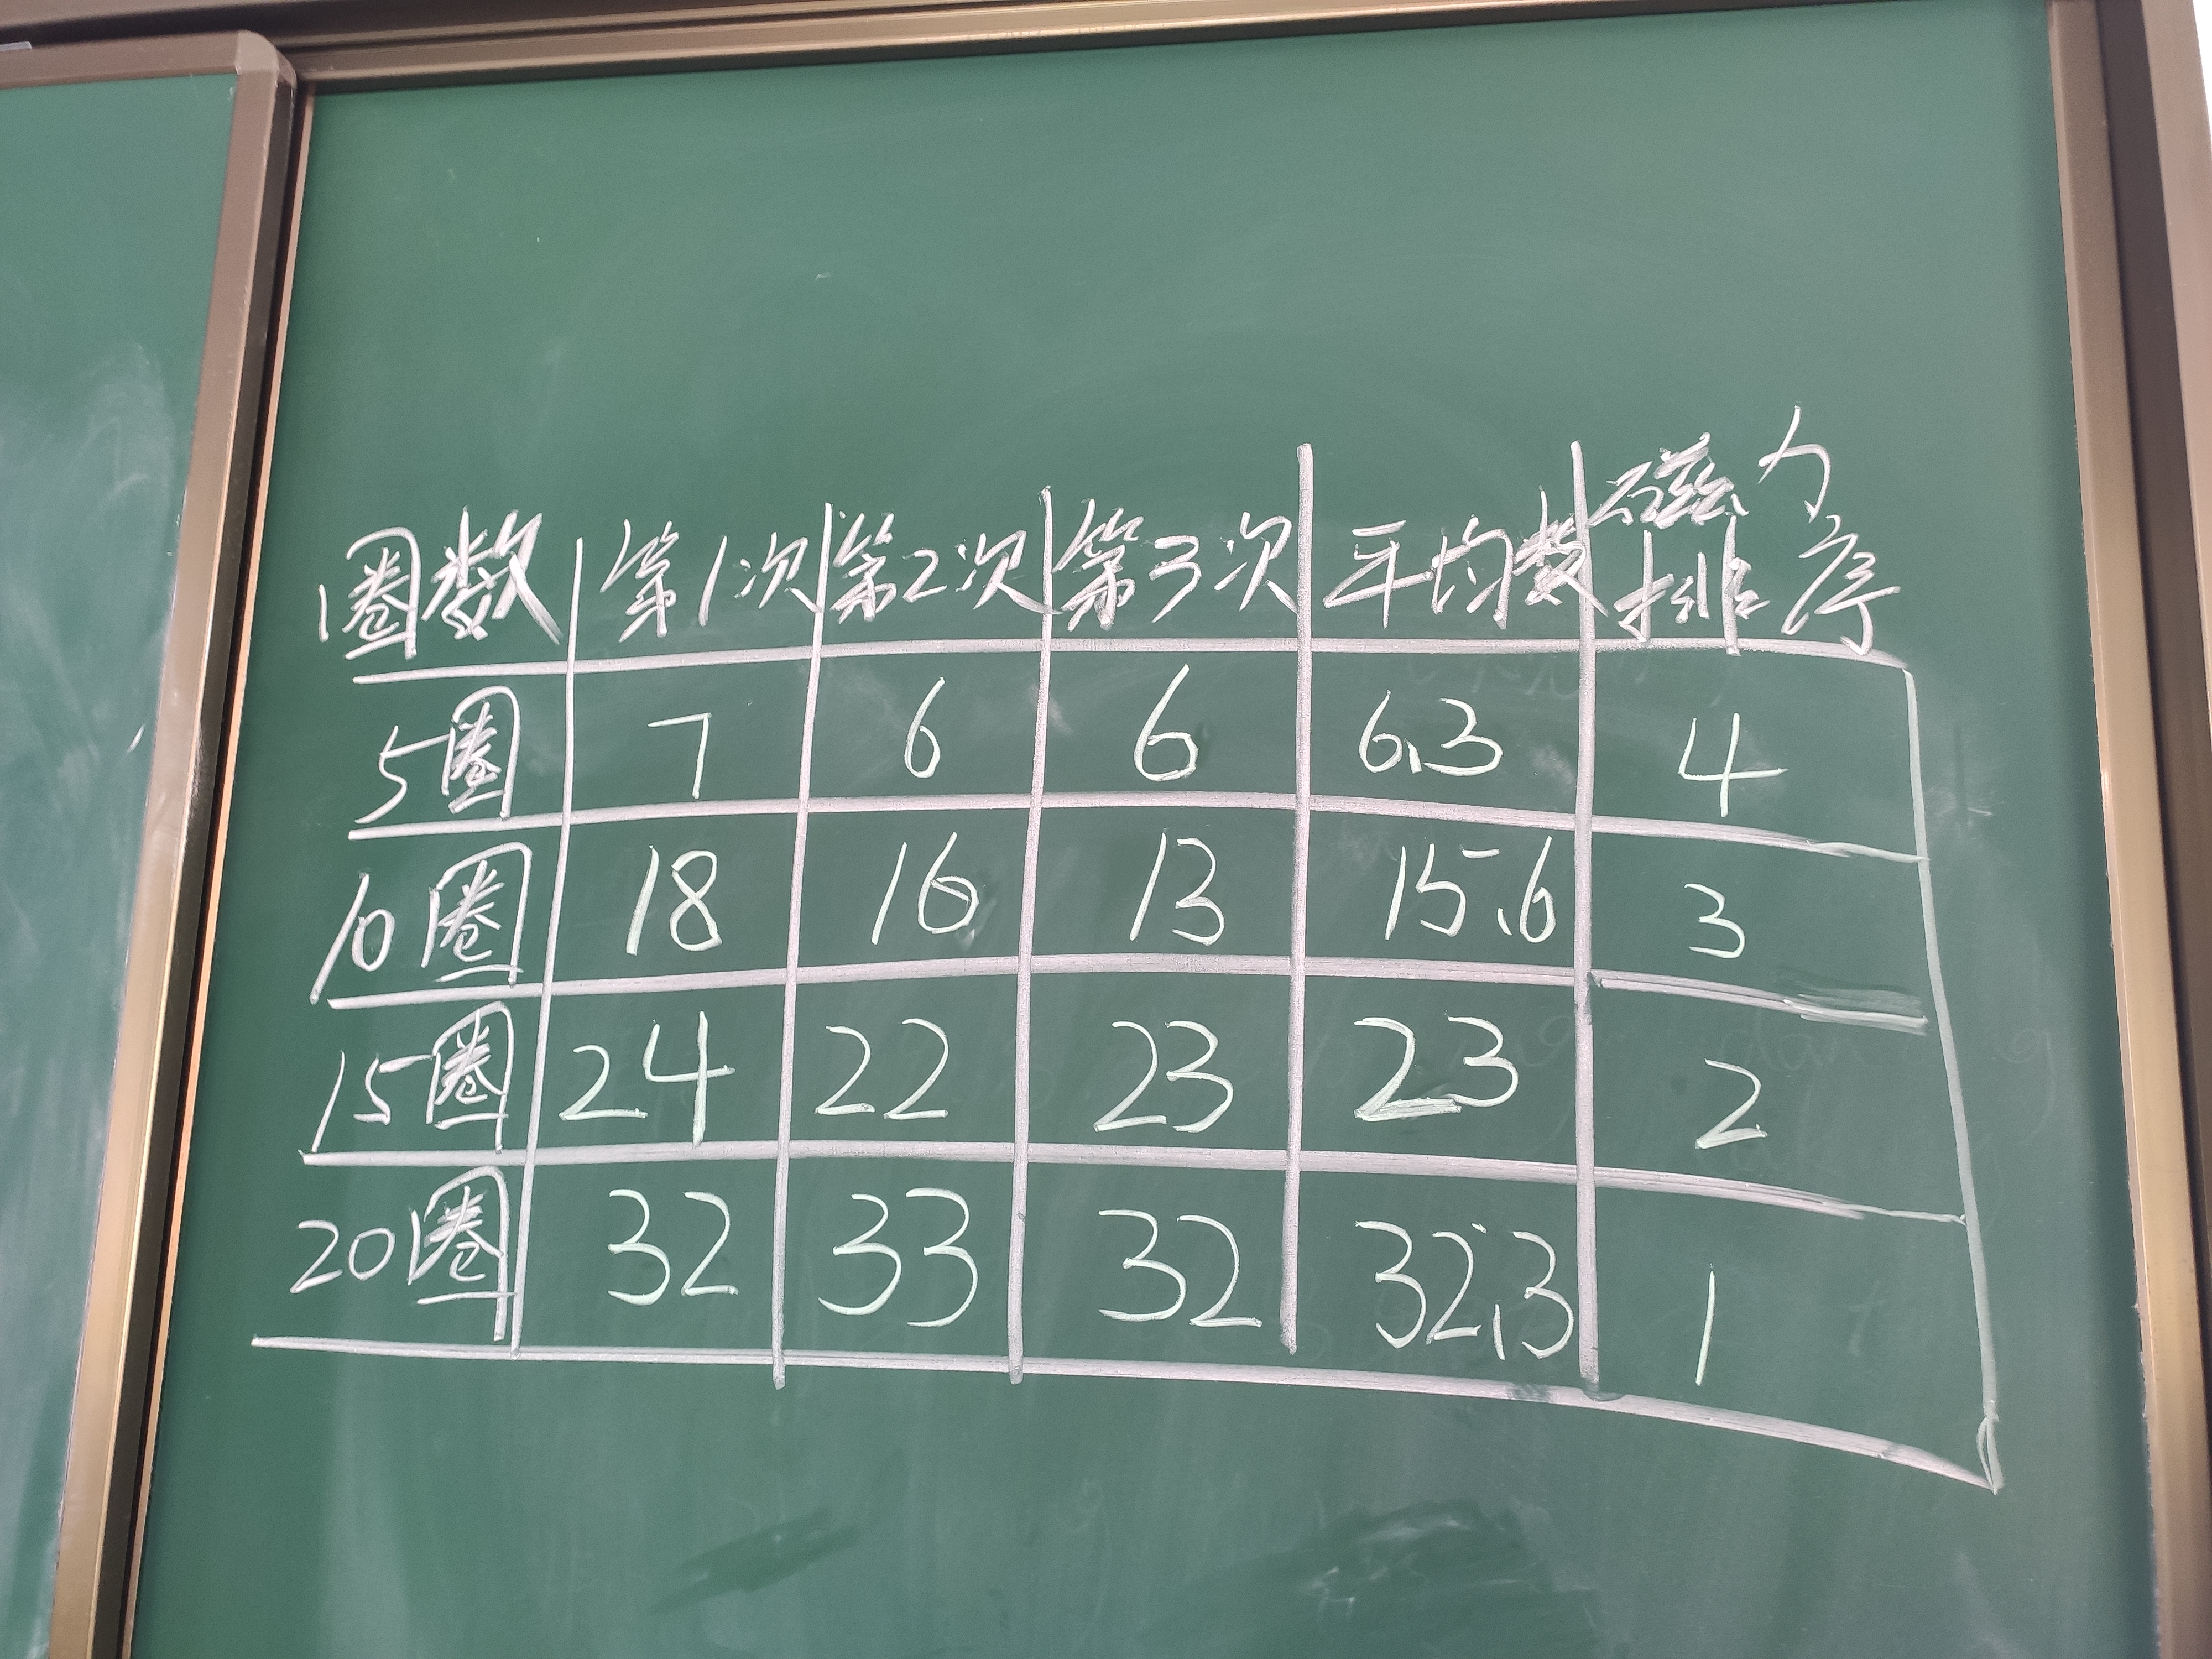 圈数 第1次 第2次 第3次 平均数 磁力排序
5圈 7 6 6 6.3 4
10圈 18 16 13 15.6 3
15圈 24 22 23 23 2
20圈 32 33 32 32.3 1